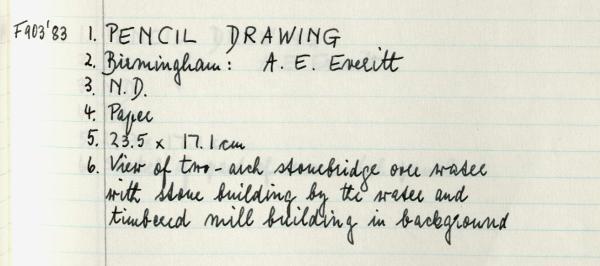 F903'83 1. PENCIL DRAWING
2. Birmingham: A. E. Everitt
3. N.D.
4. Paper
5. 23.5 x 17.1 cm
6. View of two-arch stonebridge over water
with stone building by the water and
timbered mill building in background